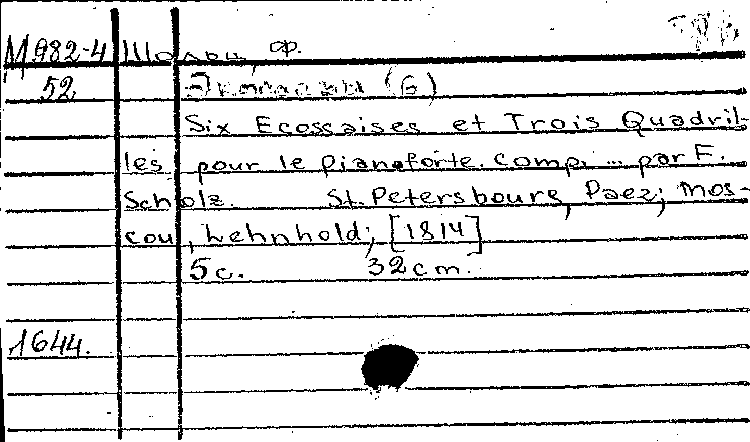 М982-4 Шольц, Ф.
52 Экоссезы (6)
Six Ecossaises et Trois Quadril-
les pour le pianoforte. comp. ... par F.
Scholz. St. Petersbourg, Paez; Mos-
cou, Lehnhold; [1814]
5с. 32 cm.
1644.